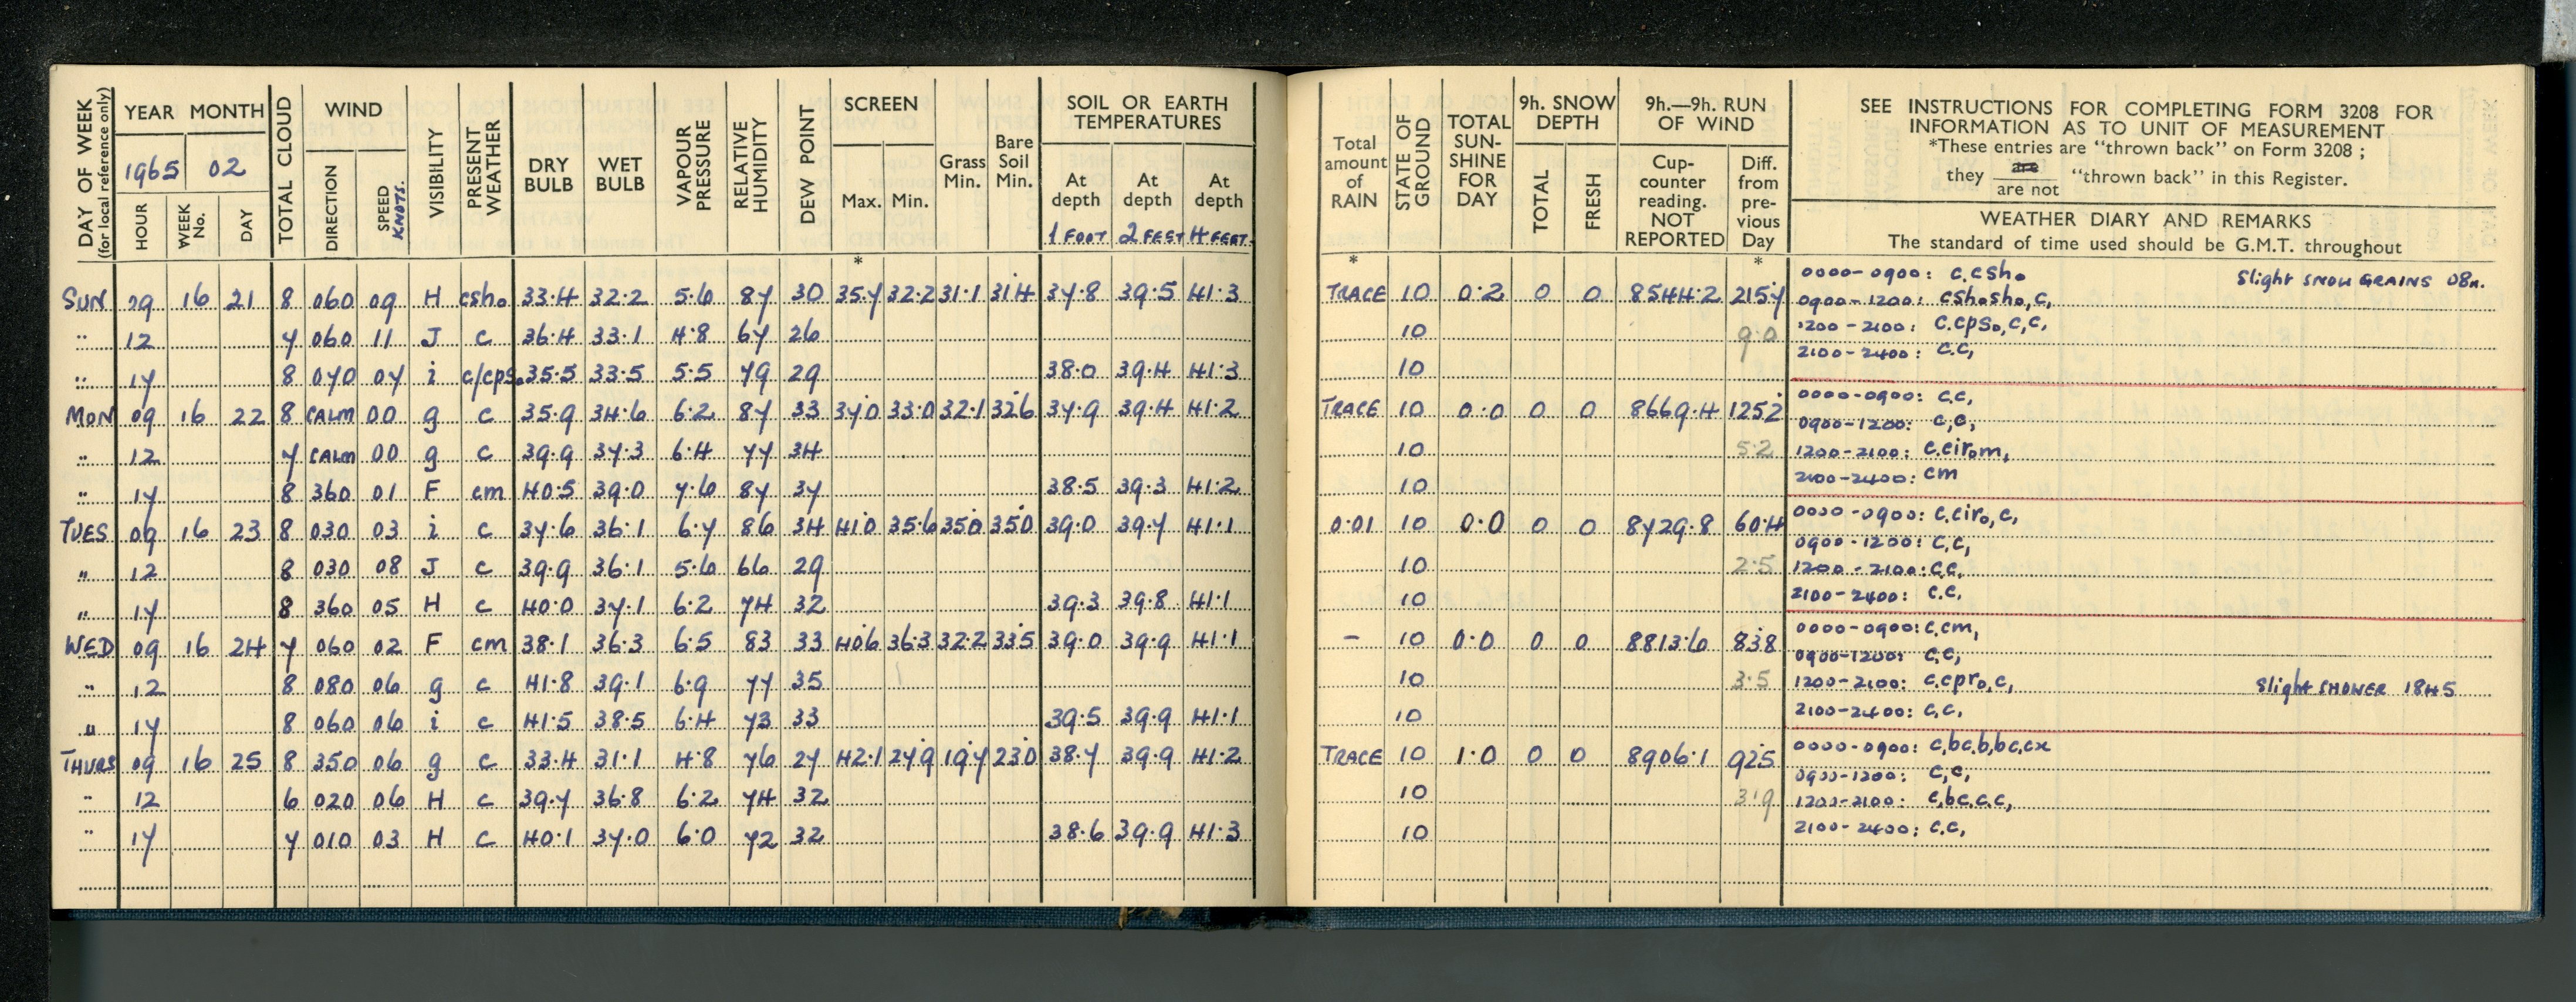 DAY OF WEEK (for local reference only)
YEAR MONTH
1965 02
HOUR WEEK No. DAY
TOTAL CLOUD
WIND
DIRECTION SPEED KNOTS.
VISIBILITY
PRESENT WEATHER
DRY BULB
WET BULB
VAPOUR PRESSURE
RELATIVE HUMIDITY
DEW POINT
SCREEN
Max. Min.
Grass Min.
Bare Soil Min.
SOIL OR EARTH TEMPERATURES
At depth At depth At depth
1 FOOT 2 FEET 4 FEET.
Total amount of RAIN
STATE OF GROUND
TOTAL SUN-SHINE FOR DAY
9h. SNOW DEPTH
TOTAL FRESH
9h.—9h. RUN OF WIND
Cup-counter reading. NOT REPORTED
Diff. from pre-vious Day
SEE INSTRUCTIONS FOR COMPLETING FORM 3208 FOR
INFORMATION AS TO UNIT OF MEASUREMENT
*These entries are "thrown back" on Form 3208 ;
they are / are not "thrown back" in this Register.
WEATHER DIARY AND REMARKS
The standard of time used should be G.M.T. throughout
* * *
SUN 09 16 21 8 060 09 H csho 33.4 32.2 5.6 87 30 35.7 32.2 31.1 31.4 37.8 39.5 41.3 TRACE 10 0.2 0 0 8544.2 215.7
" 12 7 060 11 J c 36.4 33.1 4.8 67 26 10 9.0
" 17 8 070 07 i c/cpso 35.5 33.5 5.5 79 29 38.0 39.4 41.3 10
0000-0900: c.csho Slight SNOW GRAINS 08n.
0900-1200: cshosho, c,
1200-2100: c.cpso, c, c,
2100-2400: c.c,
MON 09 16 22 8 CALM 00 g c 35.9 34.6 6.2 87 33 37.0 33.0 32.1 32.6 37.9 39.4 41.2 TRACE 10 0.0 0 0 8669.4 125.2
" 12 7 CALM 00 g c 39.9 37.3 6.4 77 34 10 5.2
" 17 8 360 01 F cm 40.5 39.0 7.6 87 37 38.5 39.3 41.2 10
0000-0900: c.c,
0900-1200: c,c,
1200-2100: c.cirom,
2100-2400: cm
TUES 09 16 23 8 030 03 i c 37.6 36.1 6.7 86 34 41.0 35.6 35.0 35.0 39.0 39.7 41.1 0.01 10 0.0 0 0 8729.8 60.4
" 12 8 030 08 J c 39.9 36.1 5.6 66 29 10 2.5
" 17 8 360 05 H c 40.0 37.1 6.2 74 32 39.3 39.8 41.1 10
0000-0900: c.ciro, c,
0900-1200: c.c,
1200-2100: c.c,
2100-2400: c.c.
WED 09 16 24 7 060 02 F cm 38.1 36.3 6.5 83 33 40.6 36.3 32.2 33.5 39.0 39.9 41.1 - 10 0.0 0 0 8813.6 83.8
" 12 8 080 06 g c 41.8 39.1 6.9 77 35 10 3.5
" 17 8 060 06 i c 41.5 38.5 6.4 73 33 39.5 39.9 41.1 10
0000-0900: c.cm,
0900-1200: c.c,
1200-2100: c.cpro, c, Slight SHOWER 1845
2100-2400: c,c,
THURS 09 16 25 8 350 06 g c 33.4 31.1 4.8 76 27 42.1 27.9 19.7 23.0 38.7 39.9 41.2 TRACE 10 1.0 0 0 8906.1 92.5
" 12 6 020 06 H c 39.7 36.8 6.2 74 32 10 3.9
" 17 7 010 03 H c 40.1 37.0 6.0 72 32 38.6 39.9 41.3 10
0000-0900: c,bc,b,bc,cx
0900-1200: c,c,
1200-2100: c,bc,c.c,
2100-2400: c.c,